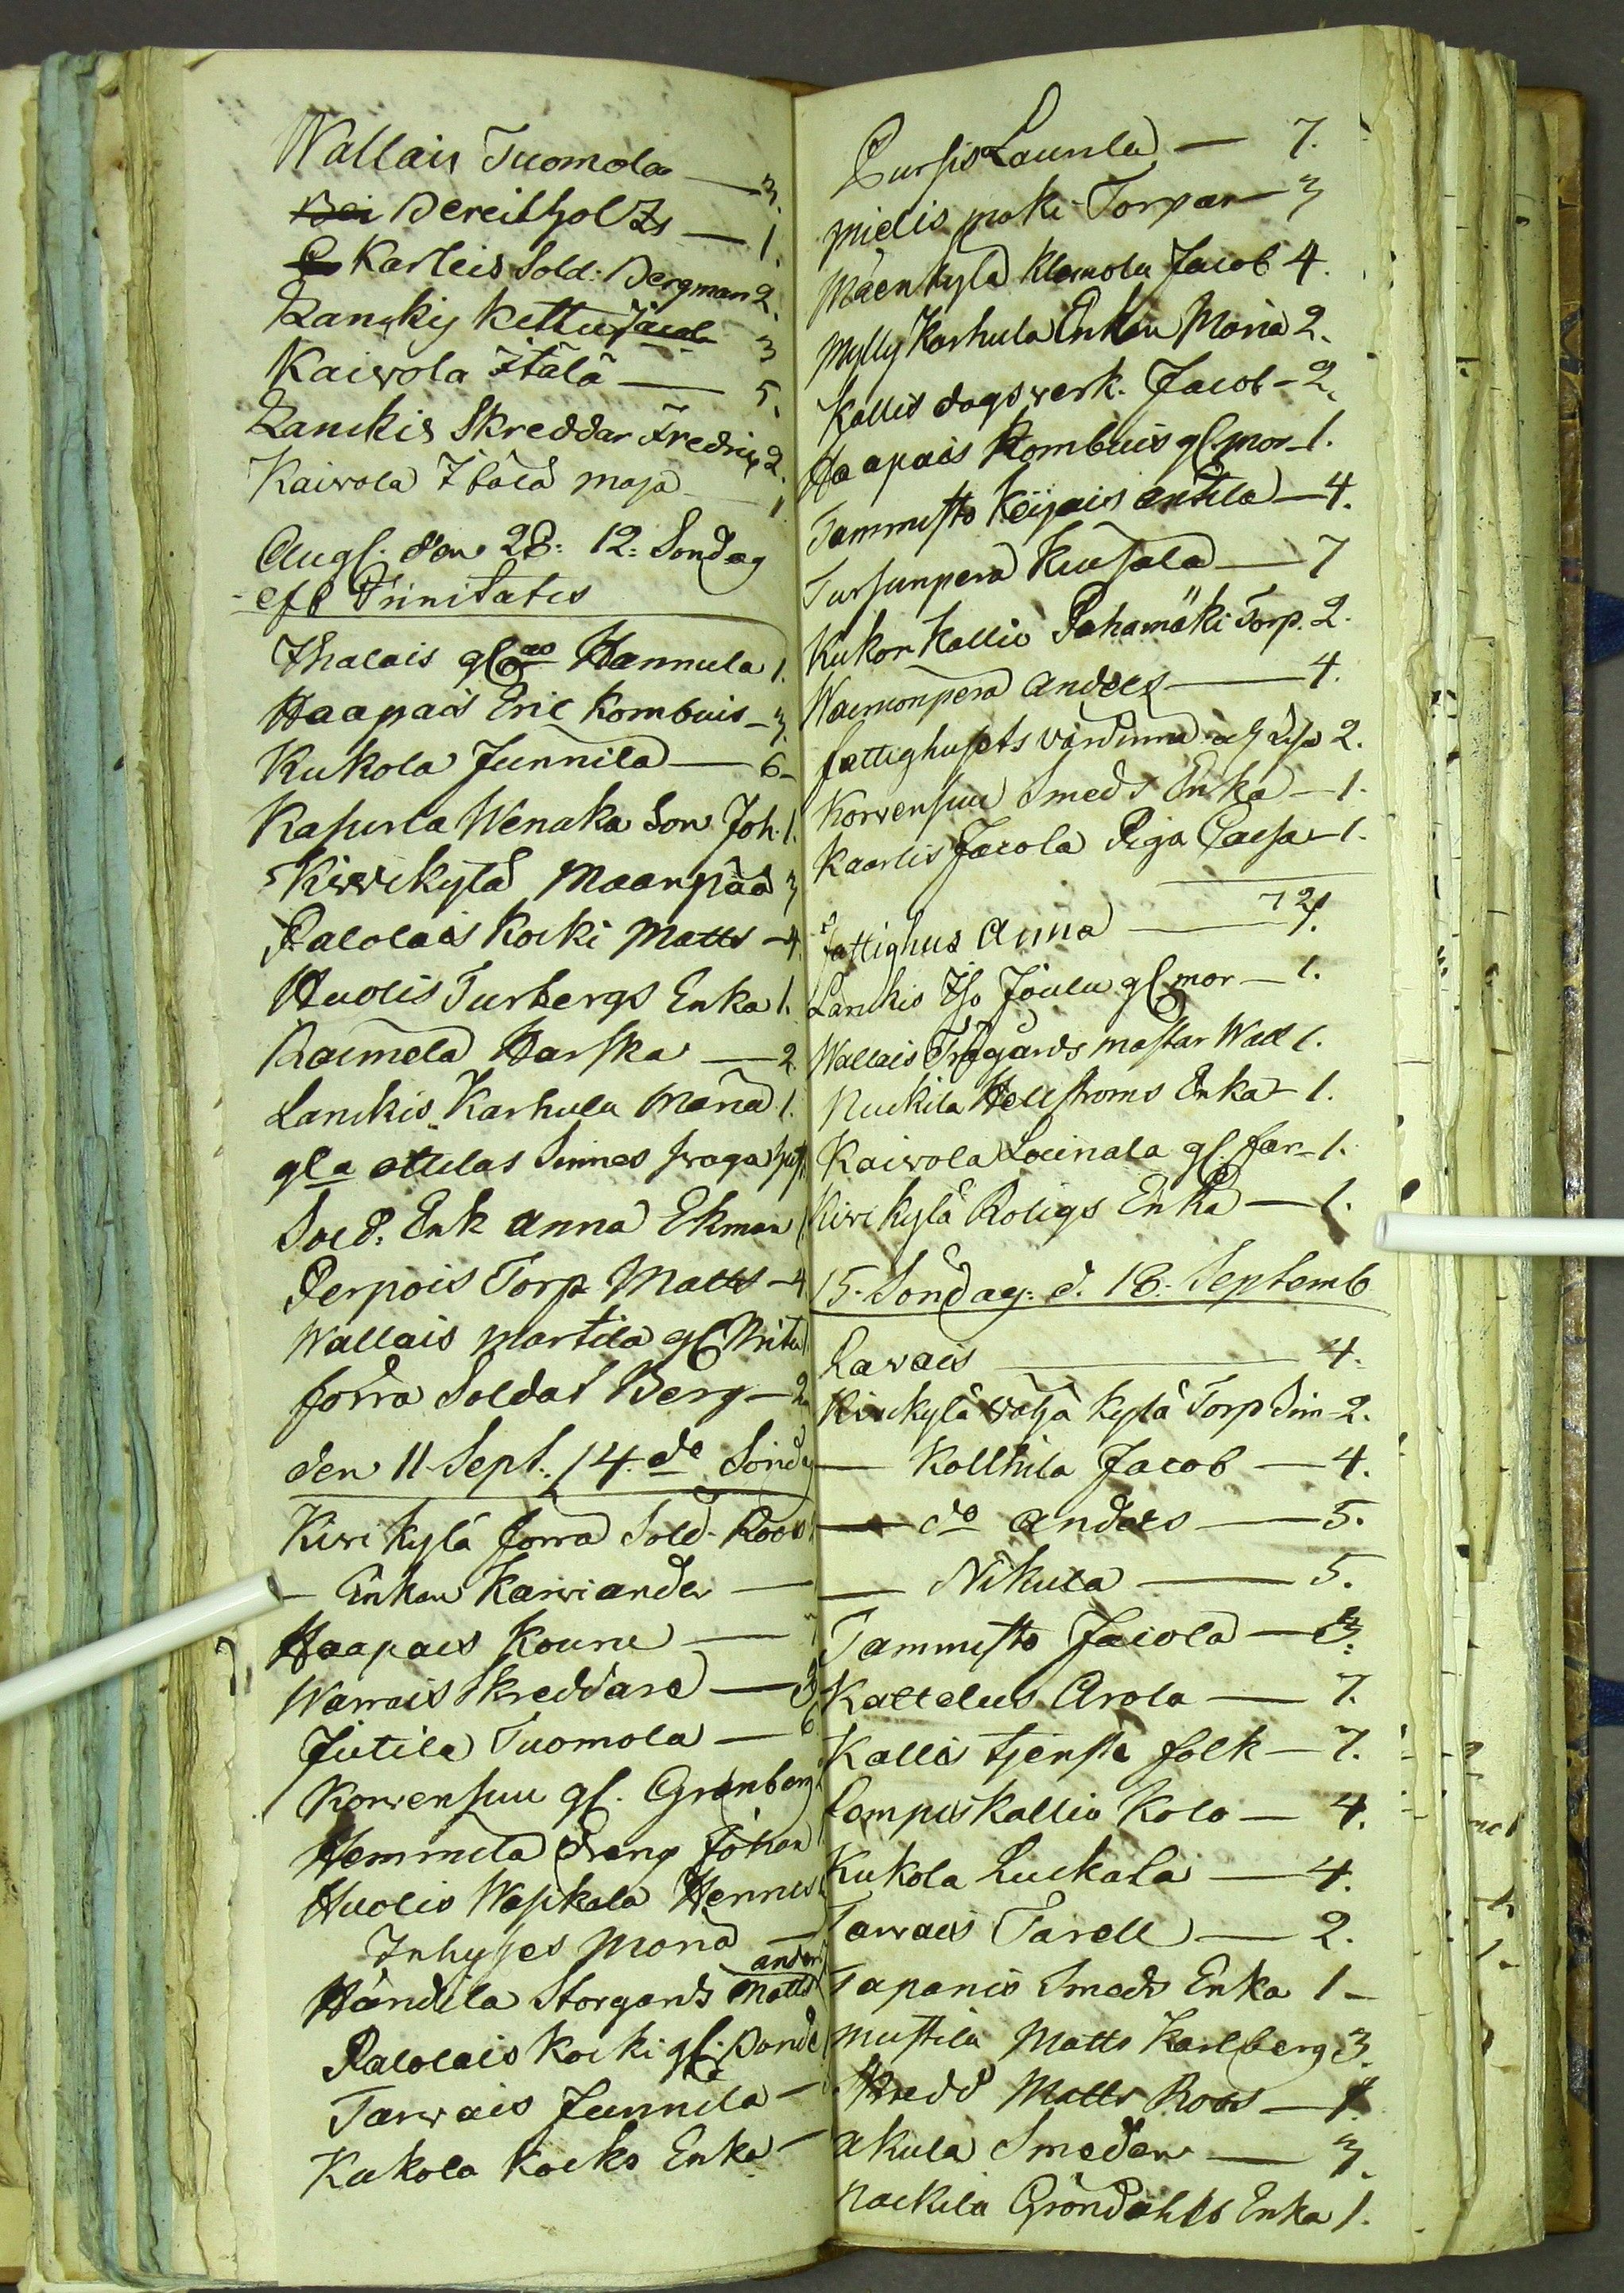 Wallais Tuomola — 3.
Bereitholzs — 1.
Karleis Sold: Bergman 2.
Lanckis kettu Jacob 3
Kaivola Itälä — 5.
Lanckis Skreddar Fredric 2.
Kaivola Itälä maja — 1
Augs. den 28: 12: Sondag
eft Trinitatis
Ihalais gl Hannula 1.
Haapais Eric Kombuis — 3.
Kukola Junnila — 6 -
Kasurla Wenaka Son Joh. 1.
Kirvikylä Maanpää 3
Palolais Kocki Matts — 4.
Huolis Turbergs Enka 1.
Raimela Harska — 2.
Lanckis Karhula Maria 1.
gla
Sold. Enk anna Ekman
Perpois Torp Matts — 4
Wallais Martila gl Brita
förra Soldat Berg — 2
den 11 Sept. 14.de Sönd
Kirikylä förra Sold. Roos
— Enkan Karviander —
Haapais Kouru —
Warrais Skreddare — 3
Jutila Tuomola — 6
Korvensuu gl. Grönberg
Hemmila dreng Johan
Huolis Waskala Hennes
Inhyses Maria —
ander
Händila Storgards Matts
Palolais Kocki gl. Bonde
Tarvais Junnila —
Kukola Kocks Enka —
Pursis Launla — 7.
Midis maki Torpar — 3
Mäenkylä Klemola Jacob 4.
Mylly Karhula Enkan Maria 2.
Kallis dagsverk. Jacob — 2.
Haapais Kombuis gl mor — 1.
Tammisto Keijais antila — 4.
Tursunpera Kuusala — 7
Kukon Kallio Pahamäki Torp. 2.
Waimonpera anders — 4.
fattighusets värdinna 2.
Korvensuu Smeds Enka — 1.
Kaarlis Jacola Piga Caisa — 1.
72
fattighus Anna — 1.
Lanckis Iso Jöulu gl mor — 1.
Wallais Trägårds mästar Wall 1.
Nuckila Hellströms Enka — 1.
Kaivola Leinala gl. far — 1.
Kirikylä Roligs Enka — 1.
15. Söndag: d. 18. Septemb
Lavais — 4.
Kirikylä välja kylä Torp Sim — 2.
— Kollkila Jacob — 4.
— do anders — 5.
— Nikula — 5.
Tammisto Jacola — 3.
Kattelus Arola — 7.
Kallis tjenste folk — 7.
Lempis kallio Kolo — 4.
Kukola Luckala — 4.
Tarvais Tarell — 2.
Tapanis Smeds Enka 1 —
Mustila Matts Karlberg 3.
Skredd Matts Roos —
akula Smeden — 3.
Nackila Gröndahls Enka 1.